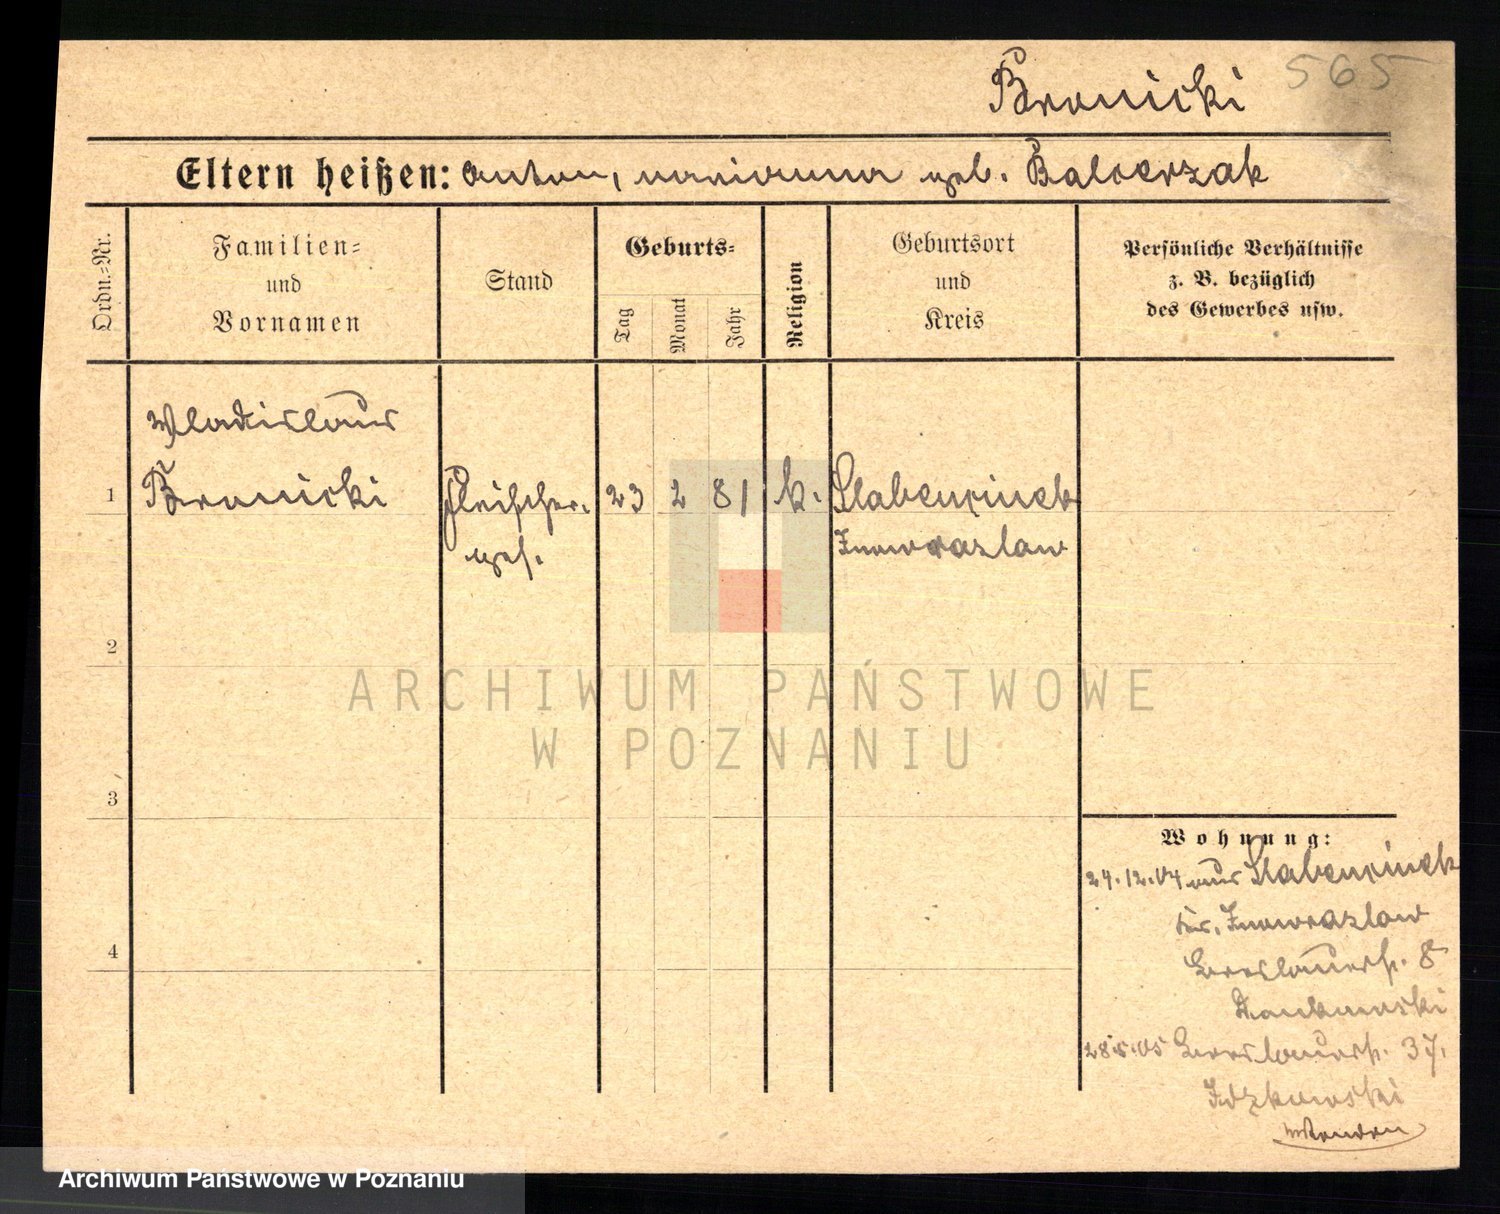 Bronicki 565
Eltern heißen: Anton, Marianna geb. Balcerzak
Ordn.-Nr.
Familien-
und
Vornamen
Stand
Geburts-
Tag
Monat
Jahr
Religion
Geburtsort
und
Kreis
Persönliche Verhältnisse
z. B. bezüglich
des Gewerbes usw.
Wladislaus
1 Bronicki Fleischer- 23 2 81 k. Slabencinek
ges. Inowrazlaw
2
ARCHIWUM PAŃSTWOWE
W POZNANIU
3
Wohnung:
24.12.04 aus Slabencinek
Kr. Inowrazlaw
Breslauerstr. 8
28.5.05 Breslauerstr. 37.
Idzkowski
4
Archiwum Państwowe w Poznaniu